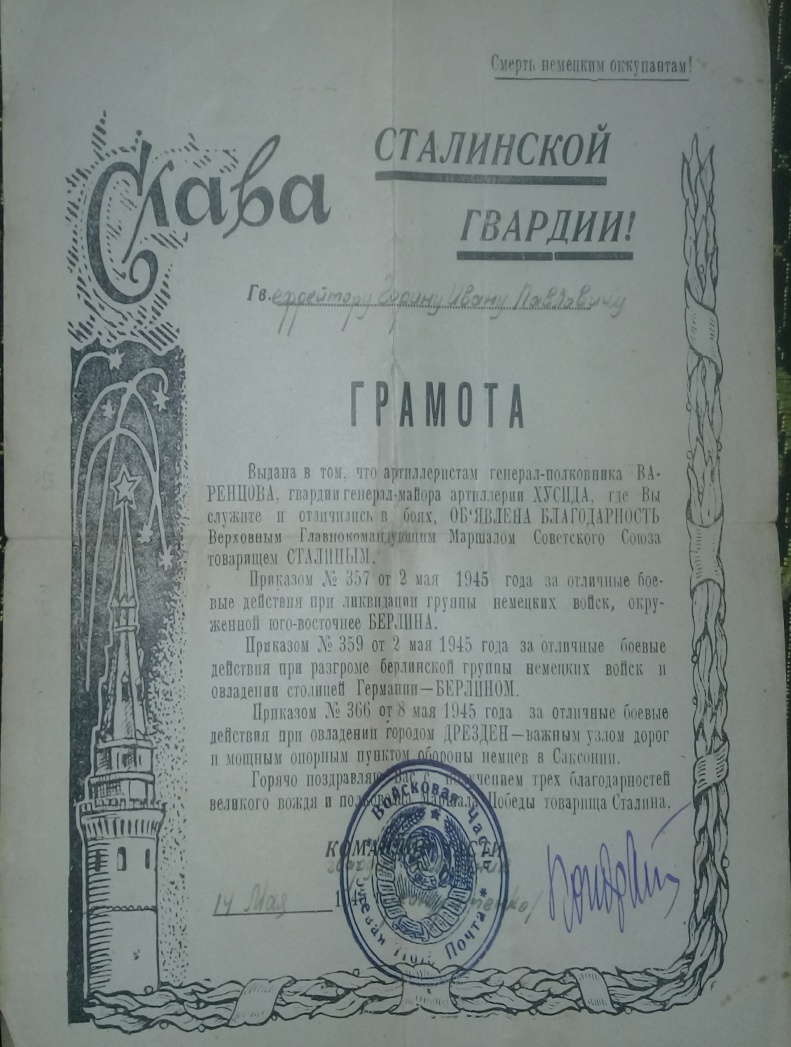 Смерть немецким оккупантам!
Слава СТАЛИНСКОЙ
ГВАРДИИ!
Гв. ефрейтору Ивану Павловичу
ГРАМОТА
Выдана в том, что артиллеристам генерал-полковника ВА-
РЕНЦОВА, гвардии генерал-майора артиллерии ХУСИДА, где Вы
служите и отличились в боях, ОБ‘ЯВЛЕНА БЛАГОДАРНОСТЬ
Верховным Главнокомандующим Маршалом Советского Союза
товарищем СТАЛИНЫМ.
Приказом № 357 от 2 мая 1945 года за отличные бое-
вые действия при ликвидации группы немецких войск, окру-
женной юго-восточнее БЕРЛИНА.
Приказом № 359 от 2 мая 1945 года за отличные боевые
действия при разгроме берлинской группы немецких войск и
овладении столицей Германии—БЕРЛИНОМ.
Приказом № 366 от 8 мая 1945 года за отличные боевые
действия при овладении городом ДРЕЗДЕН—важным узлом дорог
и мощным опорным пунктом обороны немцев в Саксонии.
Горячо поздравляю Вас с получением трех благодарностей
великого вождя и полководца Маршала Победы товарища Сталина.
КОМАНДИР ЧАСТИ
14 Мая
Войсковая Часть
Полевая Почта